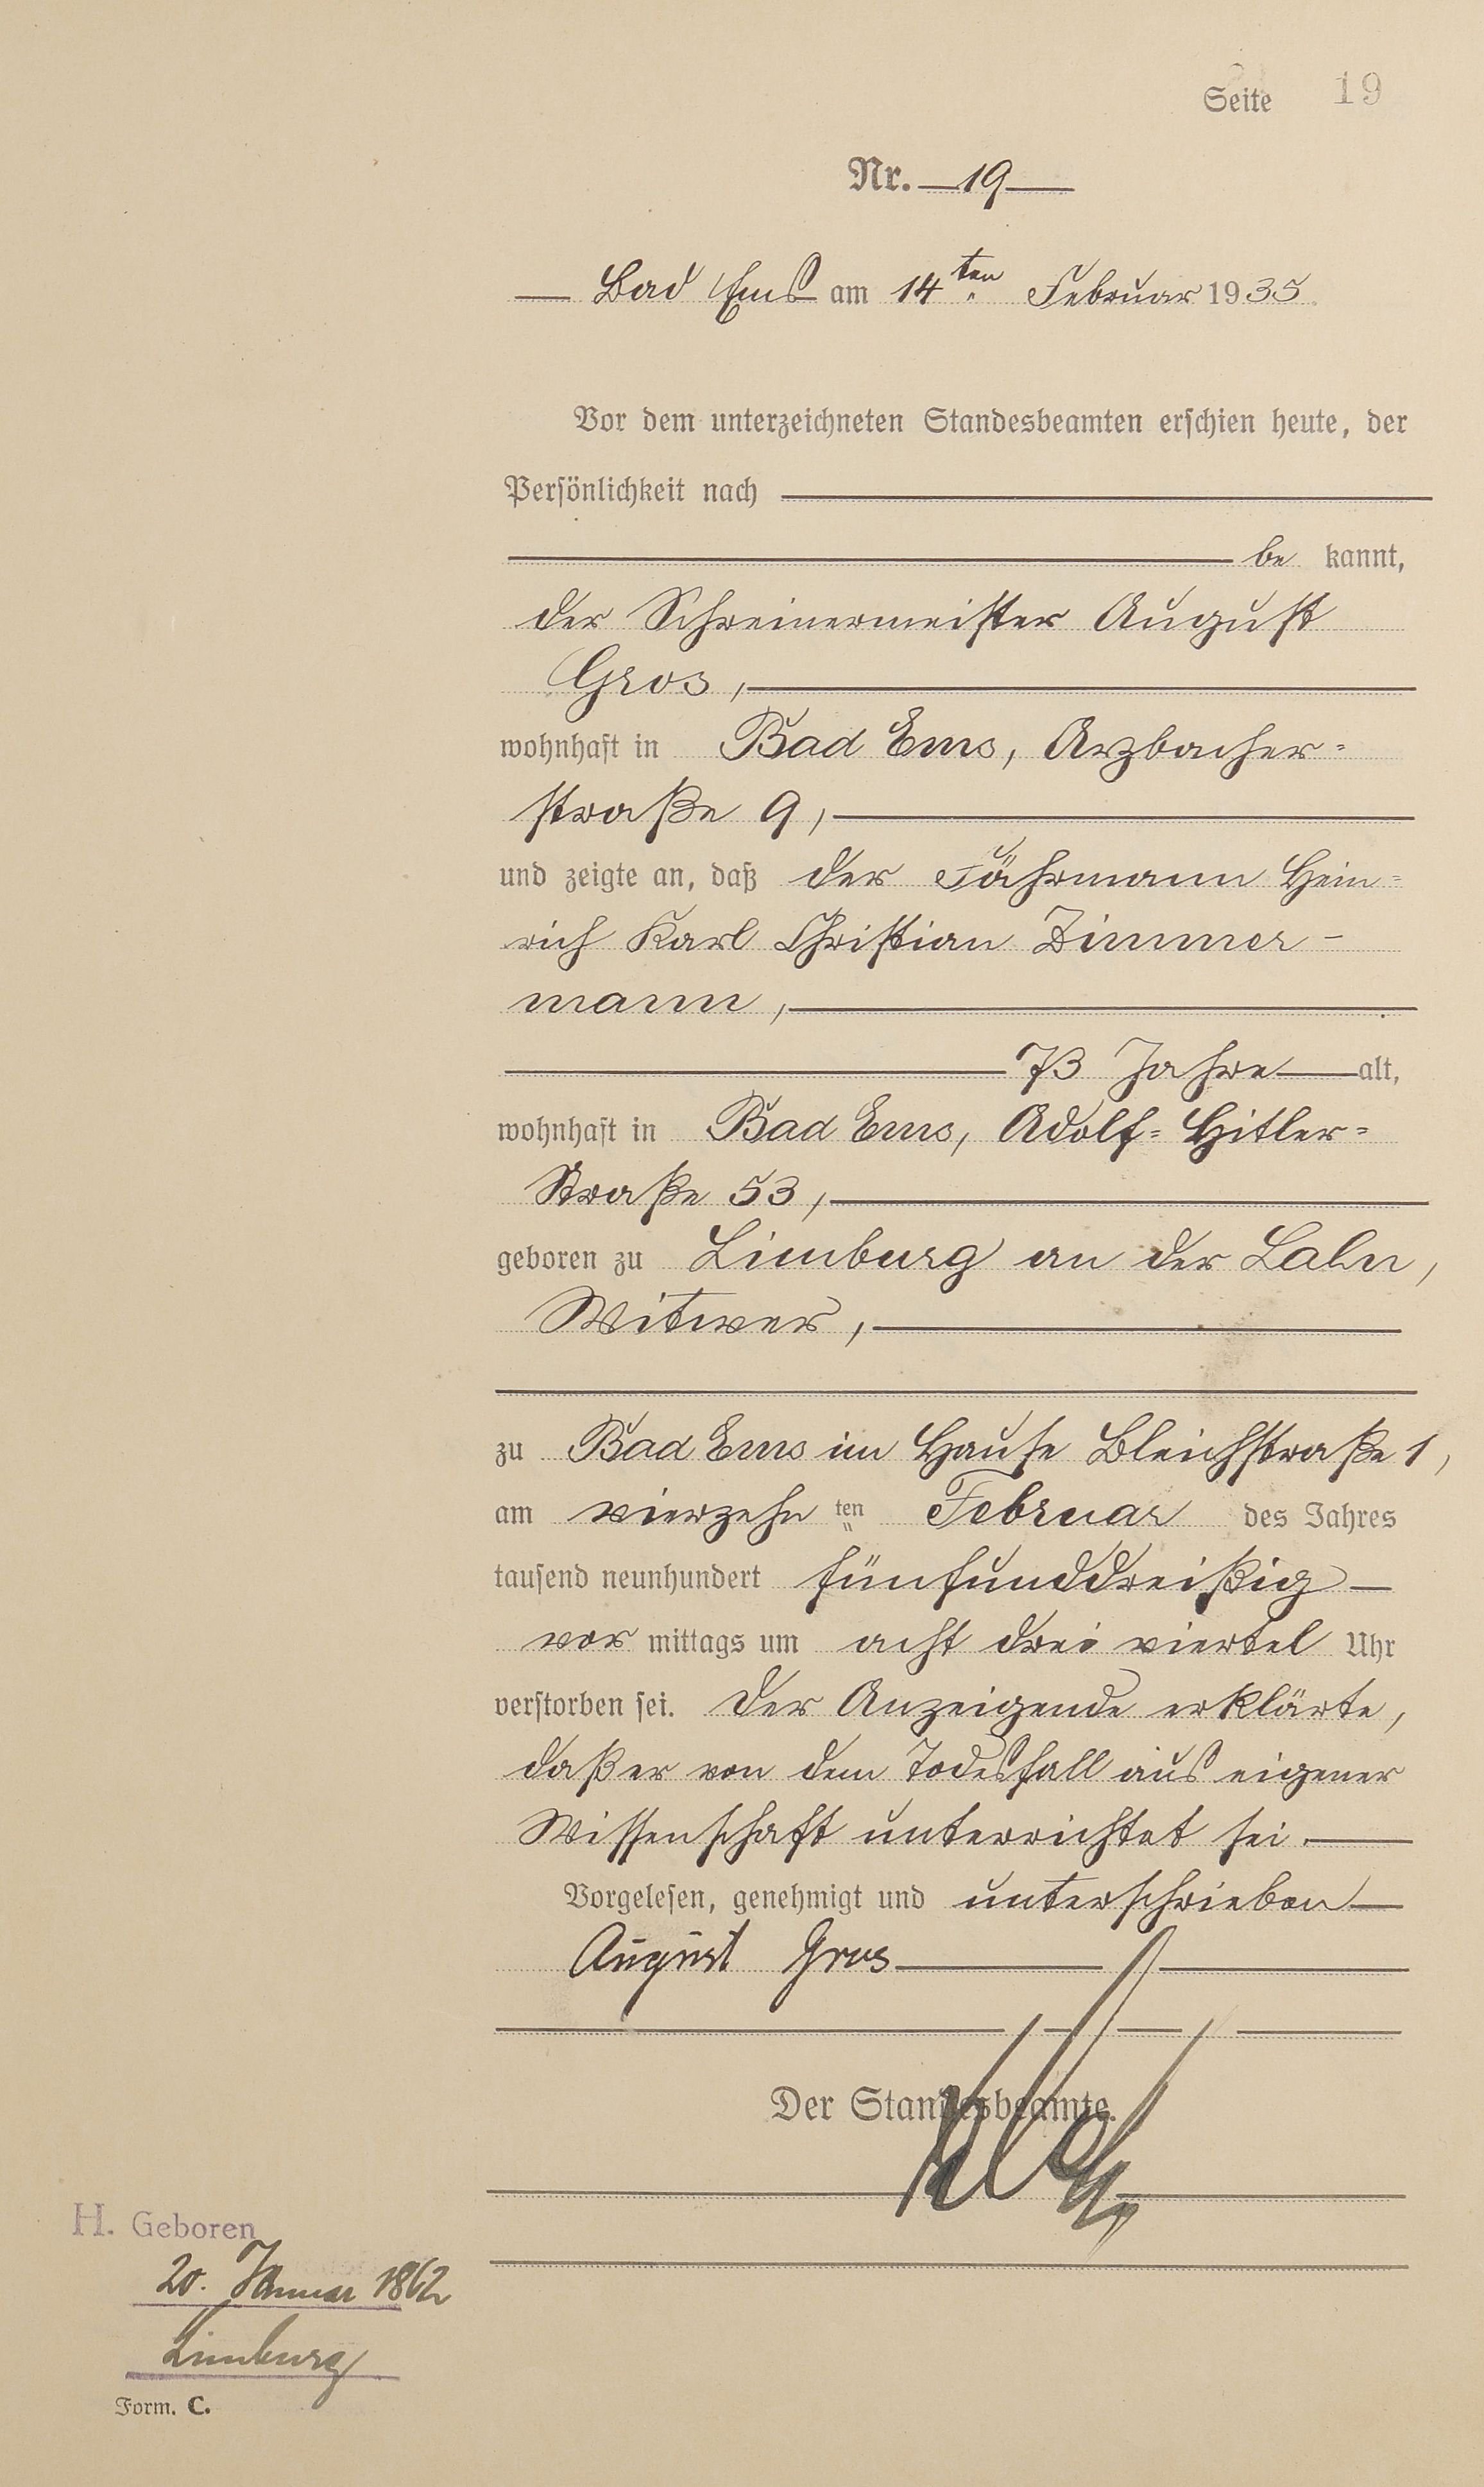 Seite 19
Nr. 19
Bad Ems am 14ten Februar 1935.
Vor dem unterzeichneten Standesbeamten erschien heute, der
Persönlichkeit nach
be kannt,
der Schreinermeister August
Gros,
wohnhaft in Bad Ems, Arzbacher=
straße 9,
und zeigte an, daß der Fährmann Hein=
rich Karl Christian Zimmer-
mann,
73 Jahre alt,
wohnhaft in Bad Ems, Adolf=Hitler=
Straße 53,
geboren zu Limburg an der Lahn,
Witwer,
zu Bad Ems im Hause Bleichstraße 1,
am vierzehn ten Februar des Jahres
tausend neunhundert fünfunddreißig
vor mittags um acht drei viertel Uhr
verstorben sei. Der Anzeigende erklärte,
daß er von dem Todesfall aus eigener
Wissenschaft unterrichtet sei.
Vorgelesen, genehmigt und unterschrieben
August Gros
Der Standesbeamte.
H. Geboren
20. Januar 1862
Limburg
Form. C.